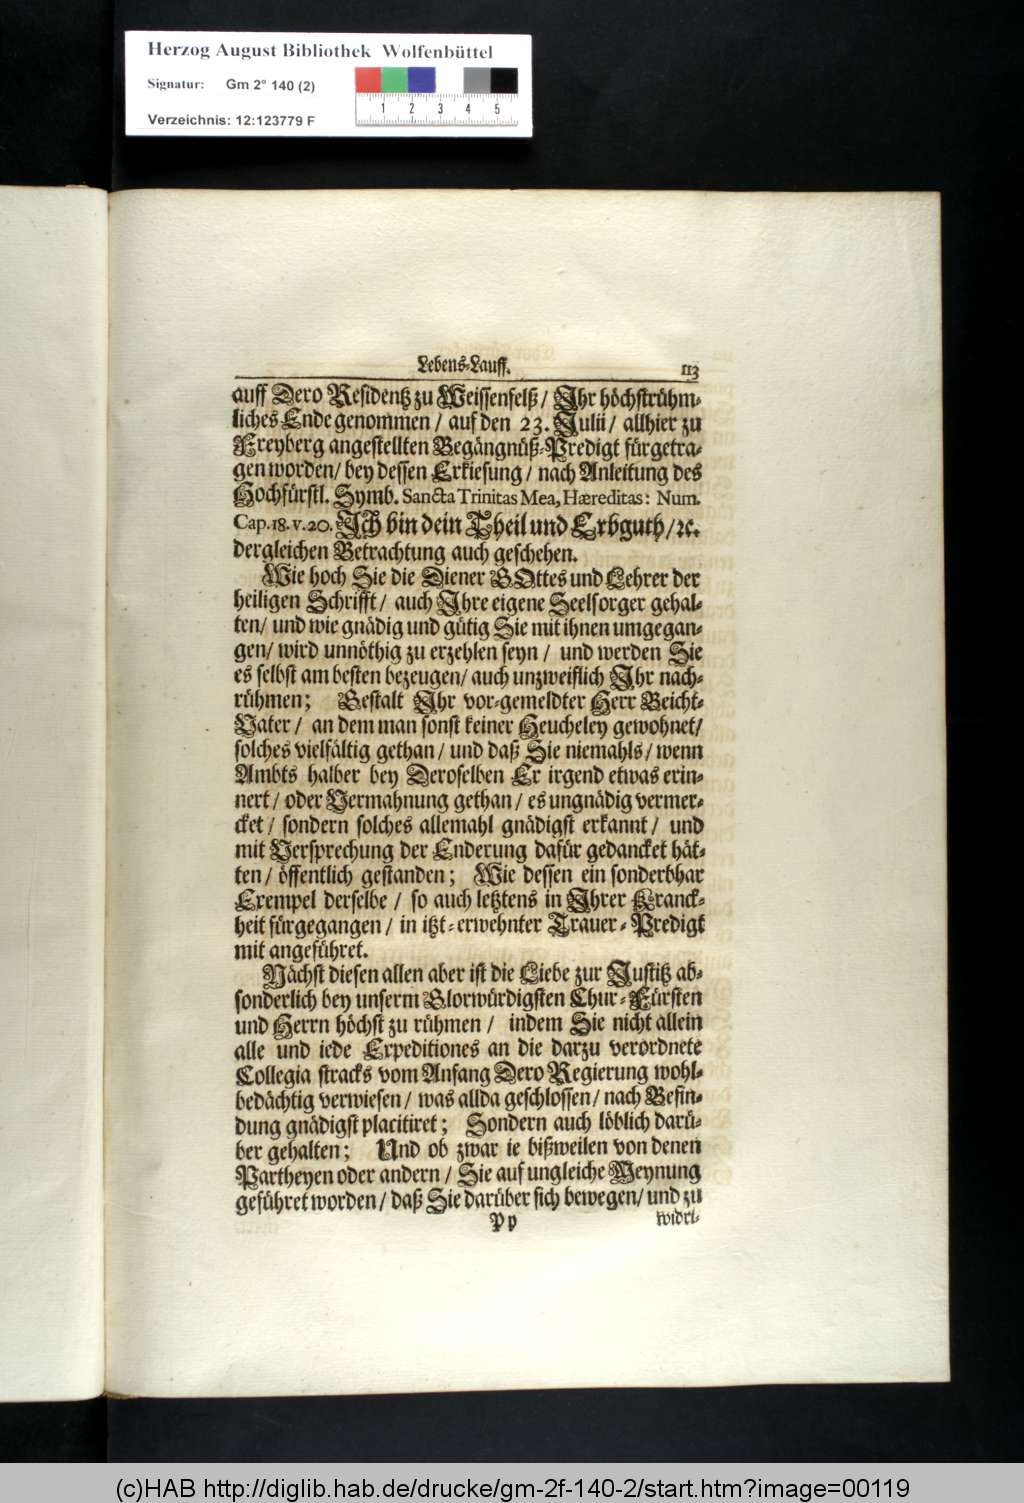 Herzog August Bibliothek Wolfenbüttel
Signatur: Gm 2° 140 (2)
Verzeichnis: 12:123779 F
1 2 3 4 5
Lebens-Lauff. 113
auff Dero Residentz zu Weissenfelß / Ihr höchstrühm-
liches Ende genommen / auf den 23. Julii / allhier zu
Freyberg angestellten Begängnüß-Predigt fürgetra-
gen worden / bey dessen Erkiesung / nach Anleitung des
Hochfürstl. Symb. Sancta Trinitas Mea, Hæreditas: Num.
Cap. 18. v. 20. Ich bin dein Theil und Erbguth / ꝛc.
dergleichen Betrachtung auch geschehen.
Wie hoch Sie die Diener GOttes und Lehrer der
heiligen Schrifft / auch Ihre eigene Seelsorger gehal-
ten / und wie gnädig und gütig Sie mit ihnen umgegan-
gen / wird unnöthig zu erzehlen seyn / und werden Sie
es selbst am besten bezeugen / auch unzweiflich Ihr nach-
rühmen; Gestalt Ihr vor-gemeldter Herr Beicht-
Vater / an dem man sonst keiner Heucheley gewohnet /
solches vielfältig gethan / und daß Sie niemahls / wenn
Ambts halber bey Deroselben Er irgend etwas erin-
nert / oder Vermahnung gethan / es ungnädig vermer-
cket / sondern solches allemahl gnädigst erkannt / und
mit Versprechung der Enderung dafür gedancket hät-
ten / öffentlich gestanden; Wie dessen ein sonderbhar
Exempel derselbe / so auch letztens in Ihrer Kranck-
heit fürgegangen / in itzt-erwehnter Trauer-Predigt
mit angeführet.
Nächst diesen allen aber ist die Liebe zur Justitz ab-
sonderlich bey unserm Glorwürdigsten Chur-Fürsten
und Herrn höchst zu rühmen / indem Sie nicht allein
alle und iede Expeditiones an die darzu verordnete
Collegia stracks vom Anfang Dero Regierung wohl-
bedächtig verwiesen / was allda geschlossen / nach Befin-
dung gnädigst placitiret; Sondern auch löblich darü-
ber gehalten; Und ob zwar ie bißweilen von denen
Partheyen oder andern / Sie auf ungleiche Meynung
geführet worden / daß Sie darüber sich bewegen / und zu
Pp widri-
(c)HAB http://diglib.hab.de/drucke/gm-2f-140-2/start.htm?image=00119